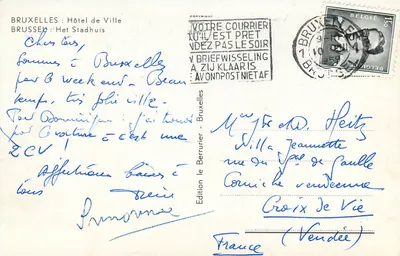 BRUXELLES : Hôtel de Ville
BRUSSEL : Het Stadhuis
Chartres,
Sommes à Bruxelles
pour 3 week end. Beau
temps, très jolie ville.
Pour Dominique : j'ai trouvé
sa voiture : c'est une
2 CV !
Affectueux baisers à
tous
Simonne
Edition le Berrurier - Bruxelles
VOTRE COURRIER
EST PRET
PAS LE SOIR
BRIEFWISSELING
ZIJ KLAAR IS
AVONDPOST NIET AF
BRUXELLES
BRUSSEL
BELGIE
BELGIQUE
Mr et Heitz
Villa Jeannette
rue du Gal de Gaulle
Corniche vendéenne
Croix de Vie
(Vendée)
France